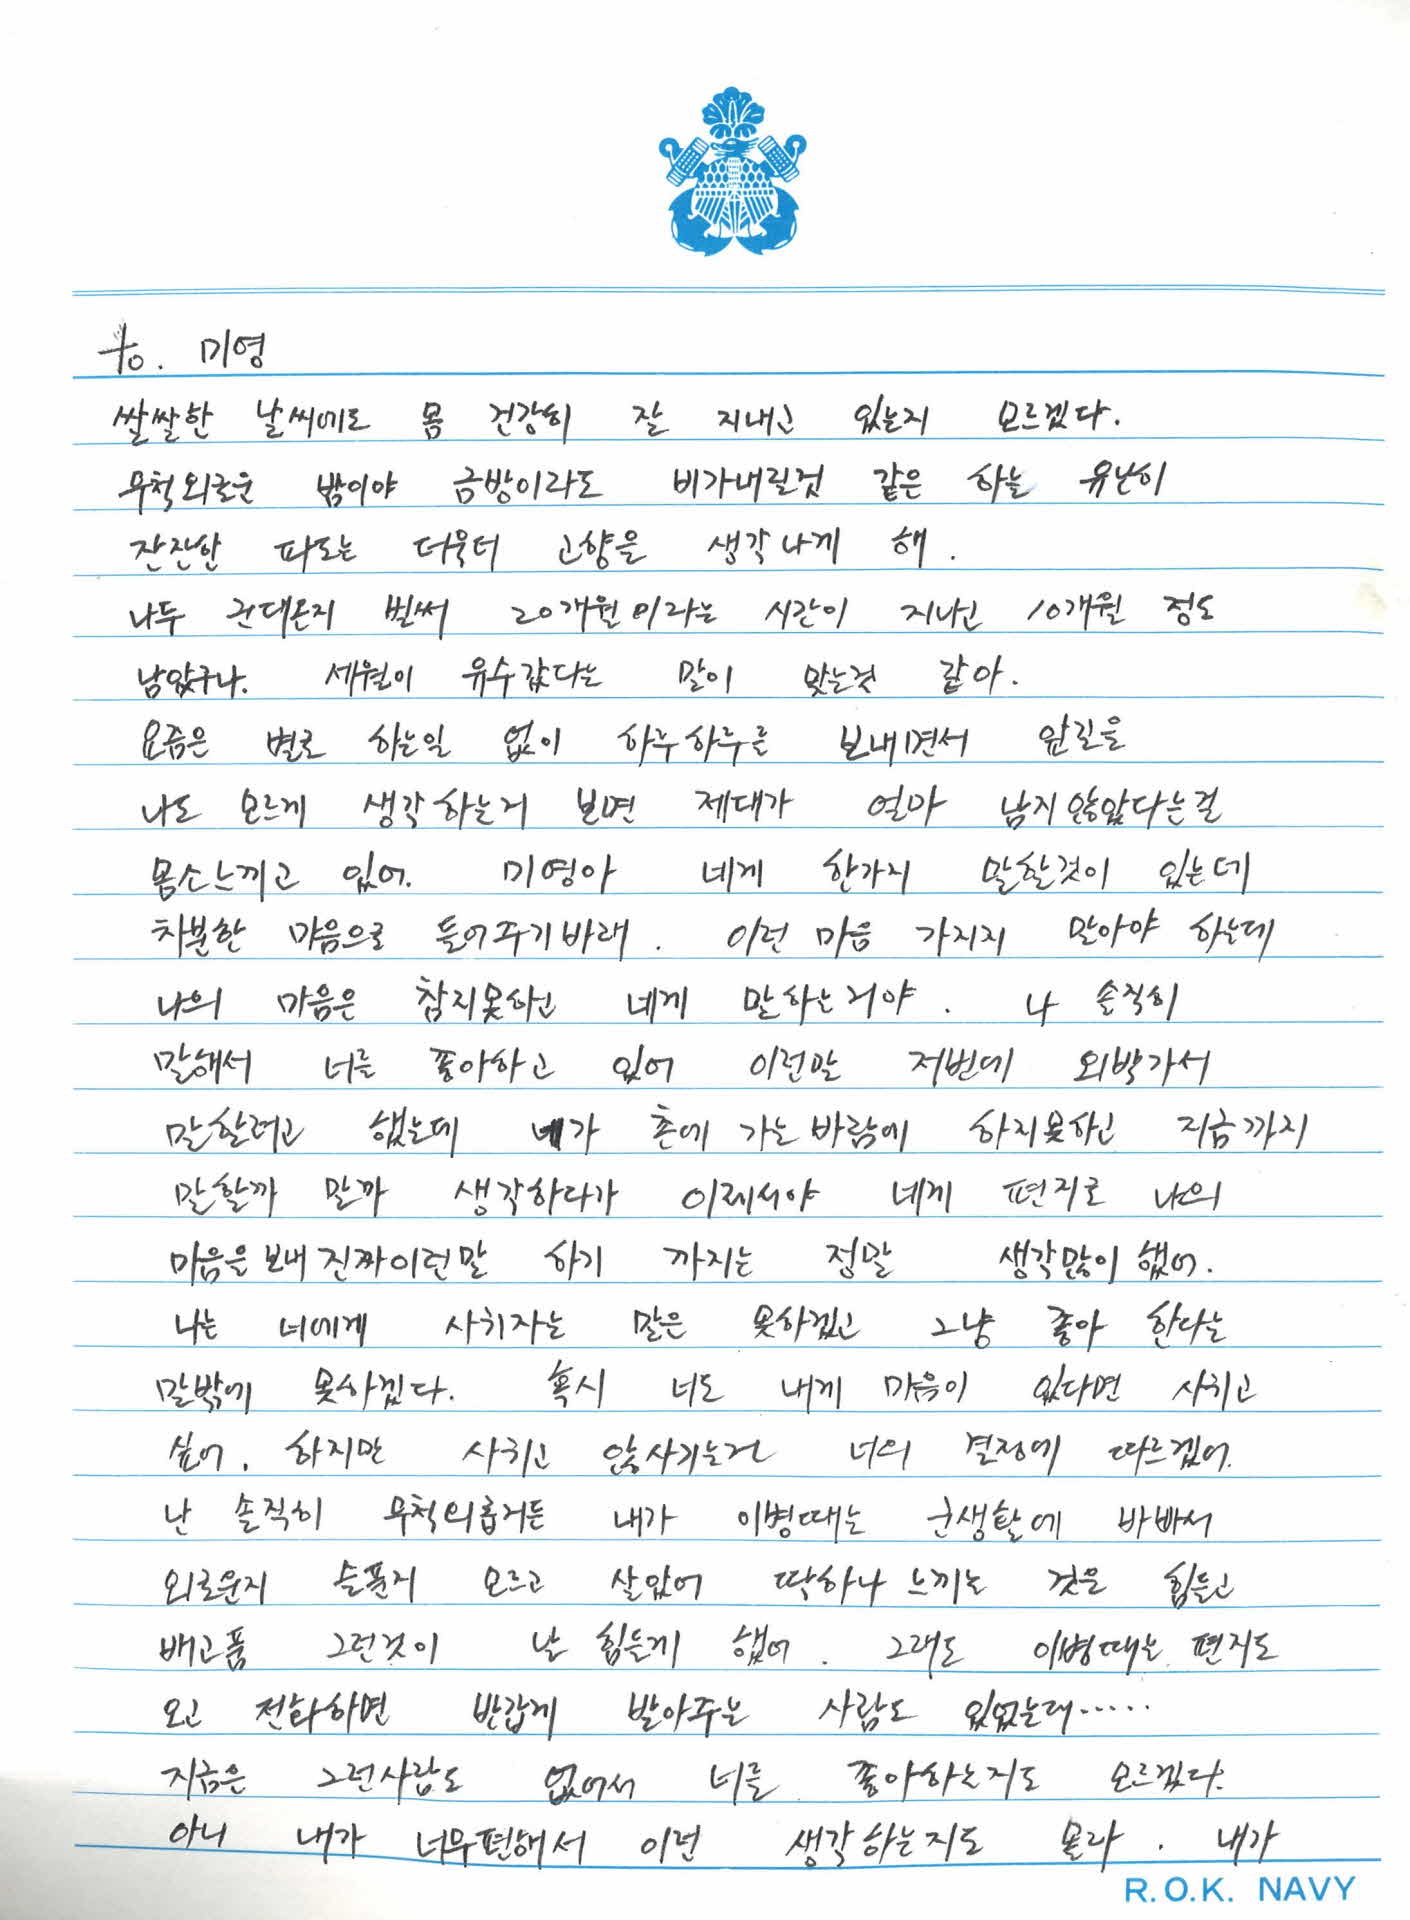 to. 미영
쌀쌀한 날씨에도 몸 건강히 잘 지내고 있는지 모르겠다.
무척외로운 밤이야 금방이라도 비가내릴것 같은 하늘 유난히
잔잔한 파도는 더욱더 고향을 생각나게 해.
나두 군대온지 벌써 20개월이라는 시간이 지나고 10개월 정도
남았구나. 세월이 유수같다는 말이 맞는것 같아.
요즘은 별로 하는일 없이 하루하루를 보내면서 앞길을
나도 모르게 생각하는거 보면 제대가 얼마 남지않았다는걸
몸소느끼고 있어. 미영아 네게 한가지 말할것이 있는데
차분한 마음으로 들어주기바래. 이런 마음 가지지 말아야 하는데
나의 마음은 참지못하고 네게 말하는거야. 나 솔직히
말해서 너를 좋아하고 있어 이런말 저번에 외박가서
말할려고 했는데 네가 촌에 가는바람에 하지못하고 지금까지
말할까 말까 생각하다가 이제서야 네게 편지로 나의
마음을보내 진짜이런말 하기 까지는 정말 생각많이했어.
나는 너에게 사귀자는 말은 못하겠고 그냥 좋아 한다는
말밖에 못하겠다. 혹시 너도 내게 마음이 있다면 사귀고
싶어. 하지만 사귀고 않사귀는건 너의 결정에 따르겠어.
난 솔직히 무척외롭거든 내가 이병때는 군생활에 바빠서
외로운지 슬픈지 모르고 살았어 딱하나 느끼는 것은 힘들고
배고픔 그런것이 날 힘들게 했어. 그래도 이병때는 편지도
오고 전화하면 반갑게 받아주는 사람도 있었는데.....
지금은 그런사람도 없어서 너를 좋아하는지도 모르겠다.
아니 내가 너무편해서 이런 생각하는지도 몰라. 내가
R.O.K. NAVY